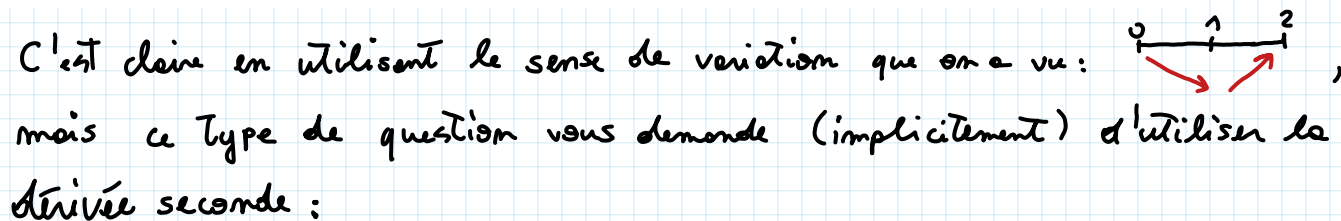 C'est claire en utilisant le sense de variation que on a vu: 0 1 2 ,
mais ce type de question vous demande (implicitement) d'utiliser la
dérivée seconde :